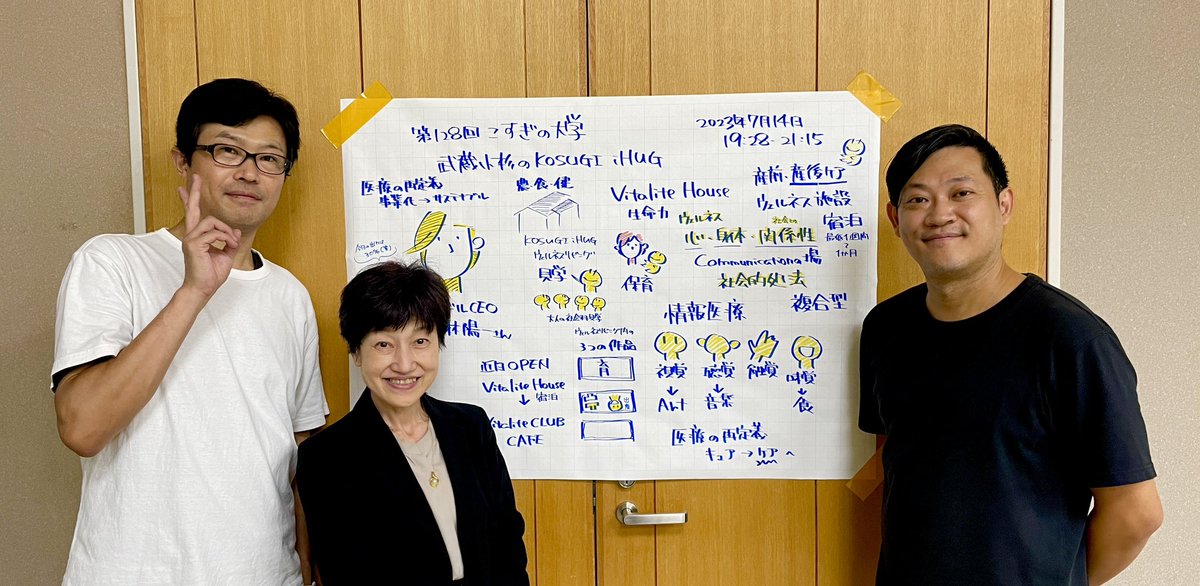 第128回 こすぎの大学
2023年7月14日
19:28-21:15
武蔵小杉のKOSUGI iHUG
医療の再定義
事業化→サステナブル
農・食・健
KOSUGI iHUG
ウェルネスリビング
見学
大人の社会科見学
Vitalite House
生命力
保育
産前・産後ケア
ウェルネス施設
宿泊
1か月
ウェルネス
社会的
心・身体・関係性
Communicationの場
社会的処方
複合型
情報医療
視覚
聴覚
触覚
味覚
Art
音楽
食
医療の再定義
キュア→ケアへ
CEO
さん
3つの作品
育
近日OPEN
Vitalite House
宿泊
Vitalite CLUB
CAFE